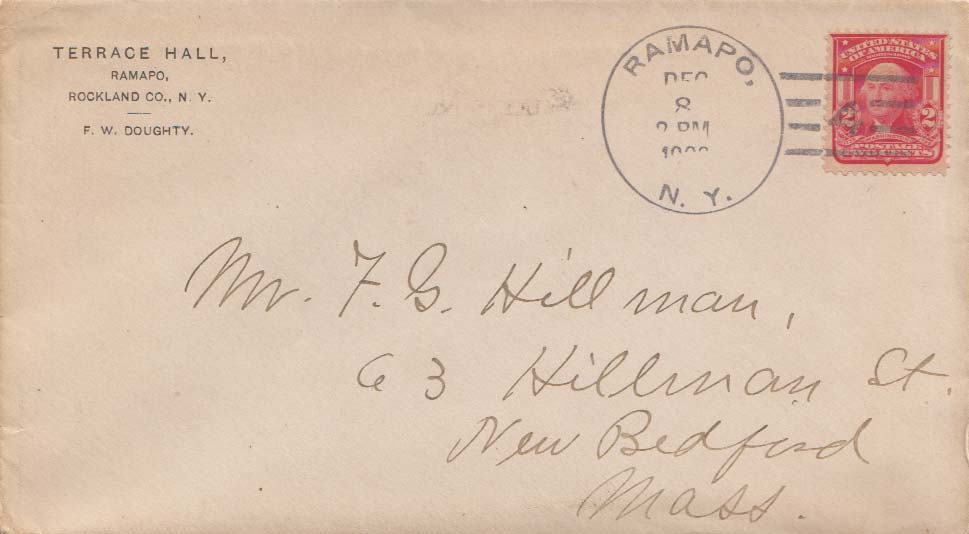 TERRACE HALL,
RAMAPO,
ROCKLAND CO., N. Y.
F. W. DOUGHTY.
RAMAPO,
DEC
8
2 PM
N. Y.
UNITED STATES
OF AMERICA
2 2
POSTAGE
TWO CENTS
Mr. F. G. Hillman,
63 Hillman St.
New Bedford
Mass.